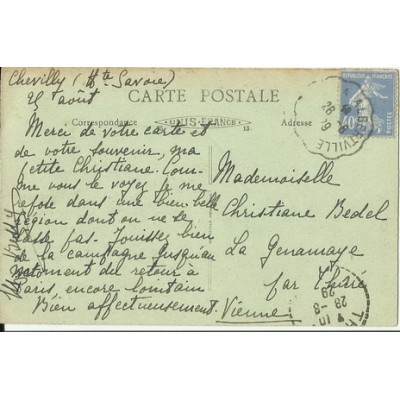 Chevilly (Hte Savoie)
25 août
CARTE POSTALE
Correspondance
Adresse
13.
RÉPUBLIQUE FRANÇAISE
POSTES
ALBERTVILLE
Merci de votre carte et
de votre souvenir, ma
petite Christiane. Com-
me vous le voyez je me
repose dans une bien belle
région dont on ne se
lasse pas. Jouissez bien
de la campagne jusqu'au
moment du retour à
Paris, encore lointain
Bien affectueusement.
Mademoiselle
Christiane Bedel
La Genamaye
par Thuré
Vienne
28-8
29